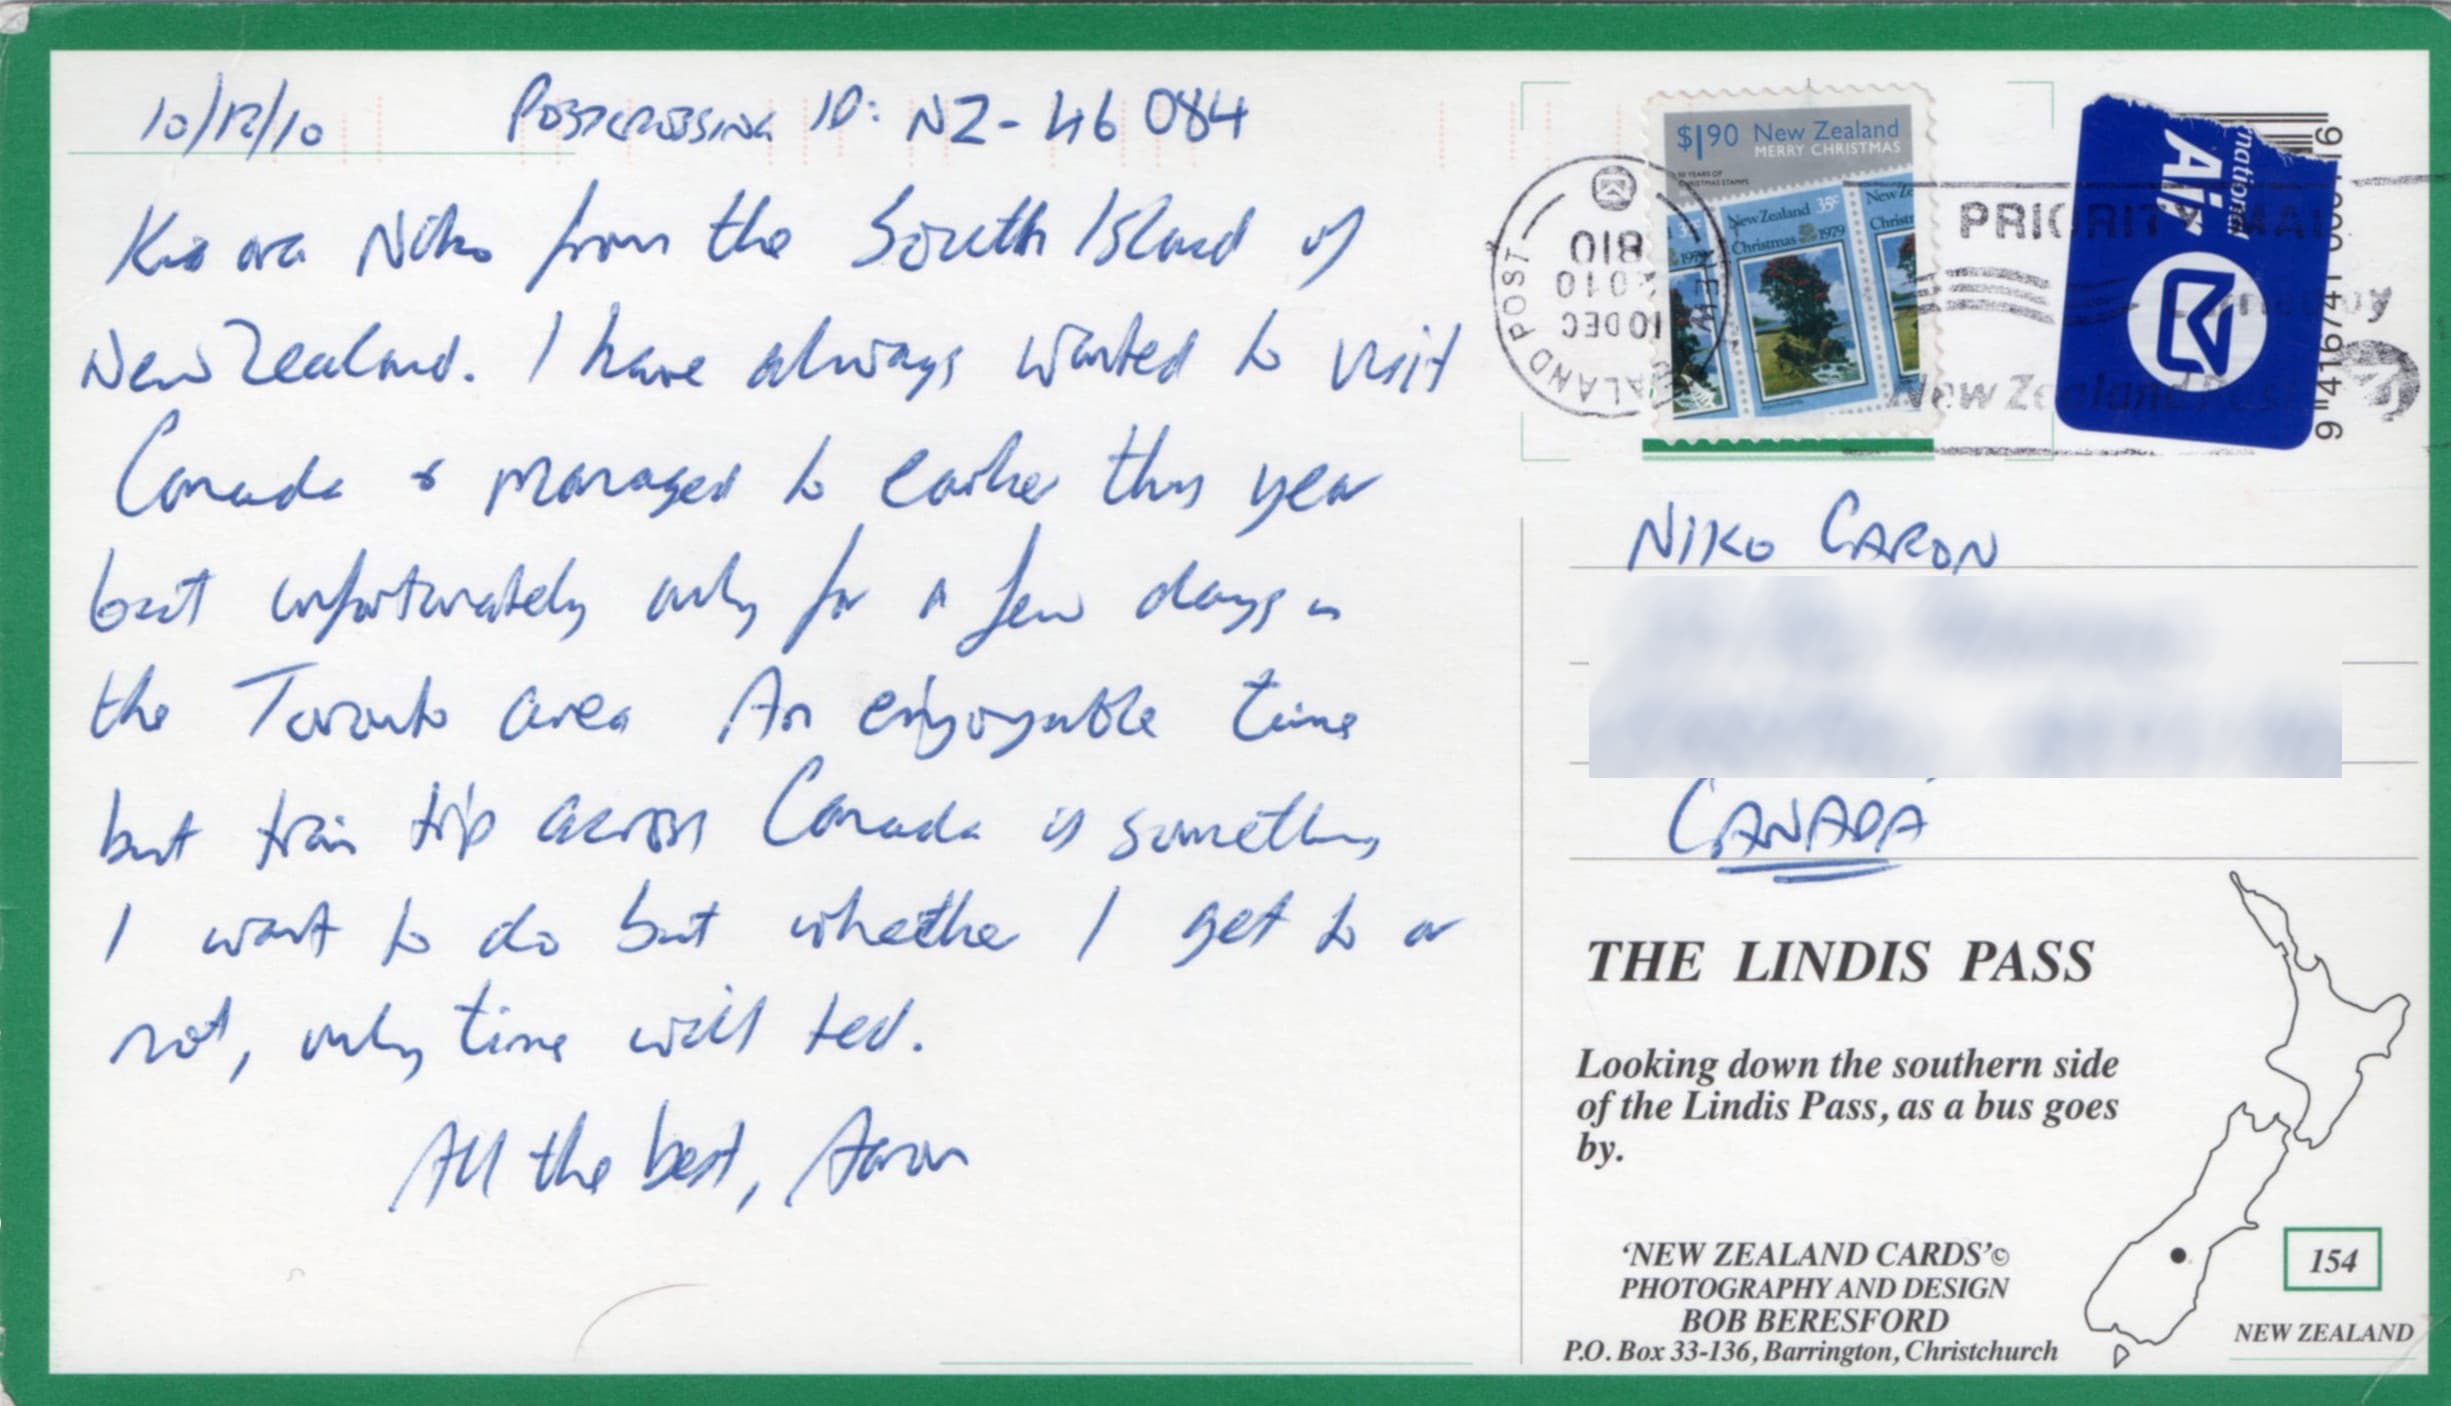 10/12/10 POSTCROSSING ID: NZ-46084
Kia ora Niko from the South Island of
New Zealand. I have always wanted to visit
Canada & managed to earlier this year
but unfortunately only for a few days in
the Toronto area An enjoyable time
but train trip across Canada is something
I want to do but whether I get to or
not, only time will tell.
All the best, Aaron
$1.90 New Zealand
MERRY CHRISTMAS
50 YEARS OF
CHRISTMAS STAMPS
New Zealand 35c
Christmas 1979
NEW ZEALAND POST
810
2010
10 DEC
PRIORITY MAIL
New Zealand Post
Air
NIKO CARON
CANADA
THE LINDIS PASS
Looking down the southern side
of the Lindis Pass, as a bus goes
by.
'NEW ZEALAND CARDS'©
PHOTOGRAPHY AND DESIGN
BOB BERESFORD
P.O. Box 33-136, Barrington, Christchurch
154
NEW ZEALAND